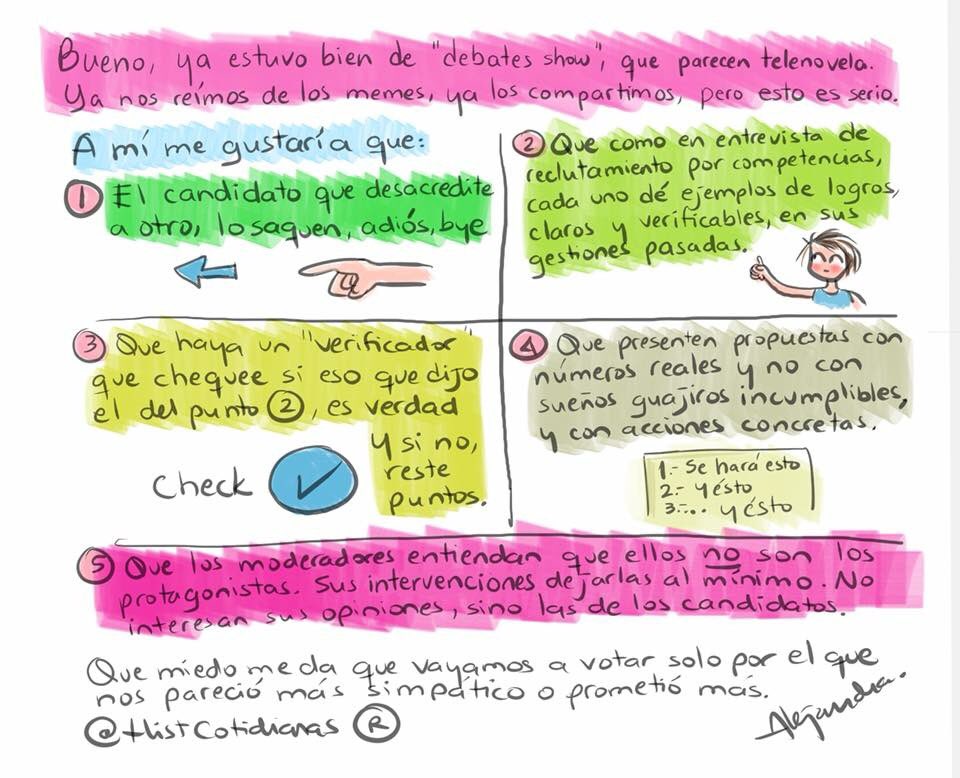 Bueno, ya estuvo bien de "debates show", que parecen telenovela.
Ya nos reímos de los memes, ya los compartimos, pero esto es serio.
A mí me gustaría que:
1 El candidato que desacredite
a otro, lo saquen, adiós, bye
2 Que como en entrevista de
reclutamiento por competencias,
cada uno dé ejemplos de logros,
claros y verificables, en sus
gestiones pasadas.
3 Que haya un "verificador"
que chequee si eso que dijo
el del punto 2, es verdad
y si no,
reste
puntos.
Check
4 Que presenten propuestas con
números reales y no con
sueños guajiros incumplibles,
y con acciones concretas.
1.- Se hará esto
2.- y ésto
3.-... y ésto
5 Que los moderadores entiendan que ellos no son los
protagonistas. Sus intervenciones dejarlas al mínimo. No
interesan sus opiniones, sino las de los candidatos.
Que miedo me da que vayamos a votar solo por el que
nos pareció más simpático o prometió más.
@HistCotidianas ®
Alejandra.